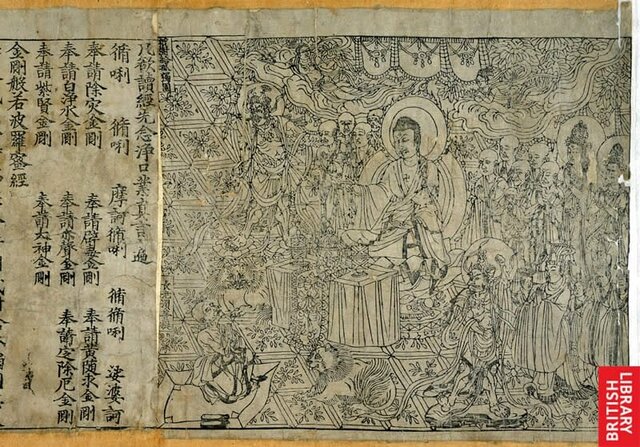 凡欲讀經先念淨口業真言一遍
脩唎 脩唎 摩訶脩唎 脩脩唎 娑婆訶
奉請除災金剛 奉請辟毒金剛 奉請黃隨求金剛
奉請白淨水金剛 奉請赤聲金剛 奉請定除厄金剛
奉請紫賢金剛 奉請大神金剛
金剛般若波羅蜜經
BRITISH
LIBRARY